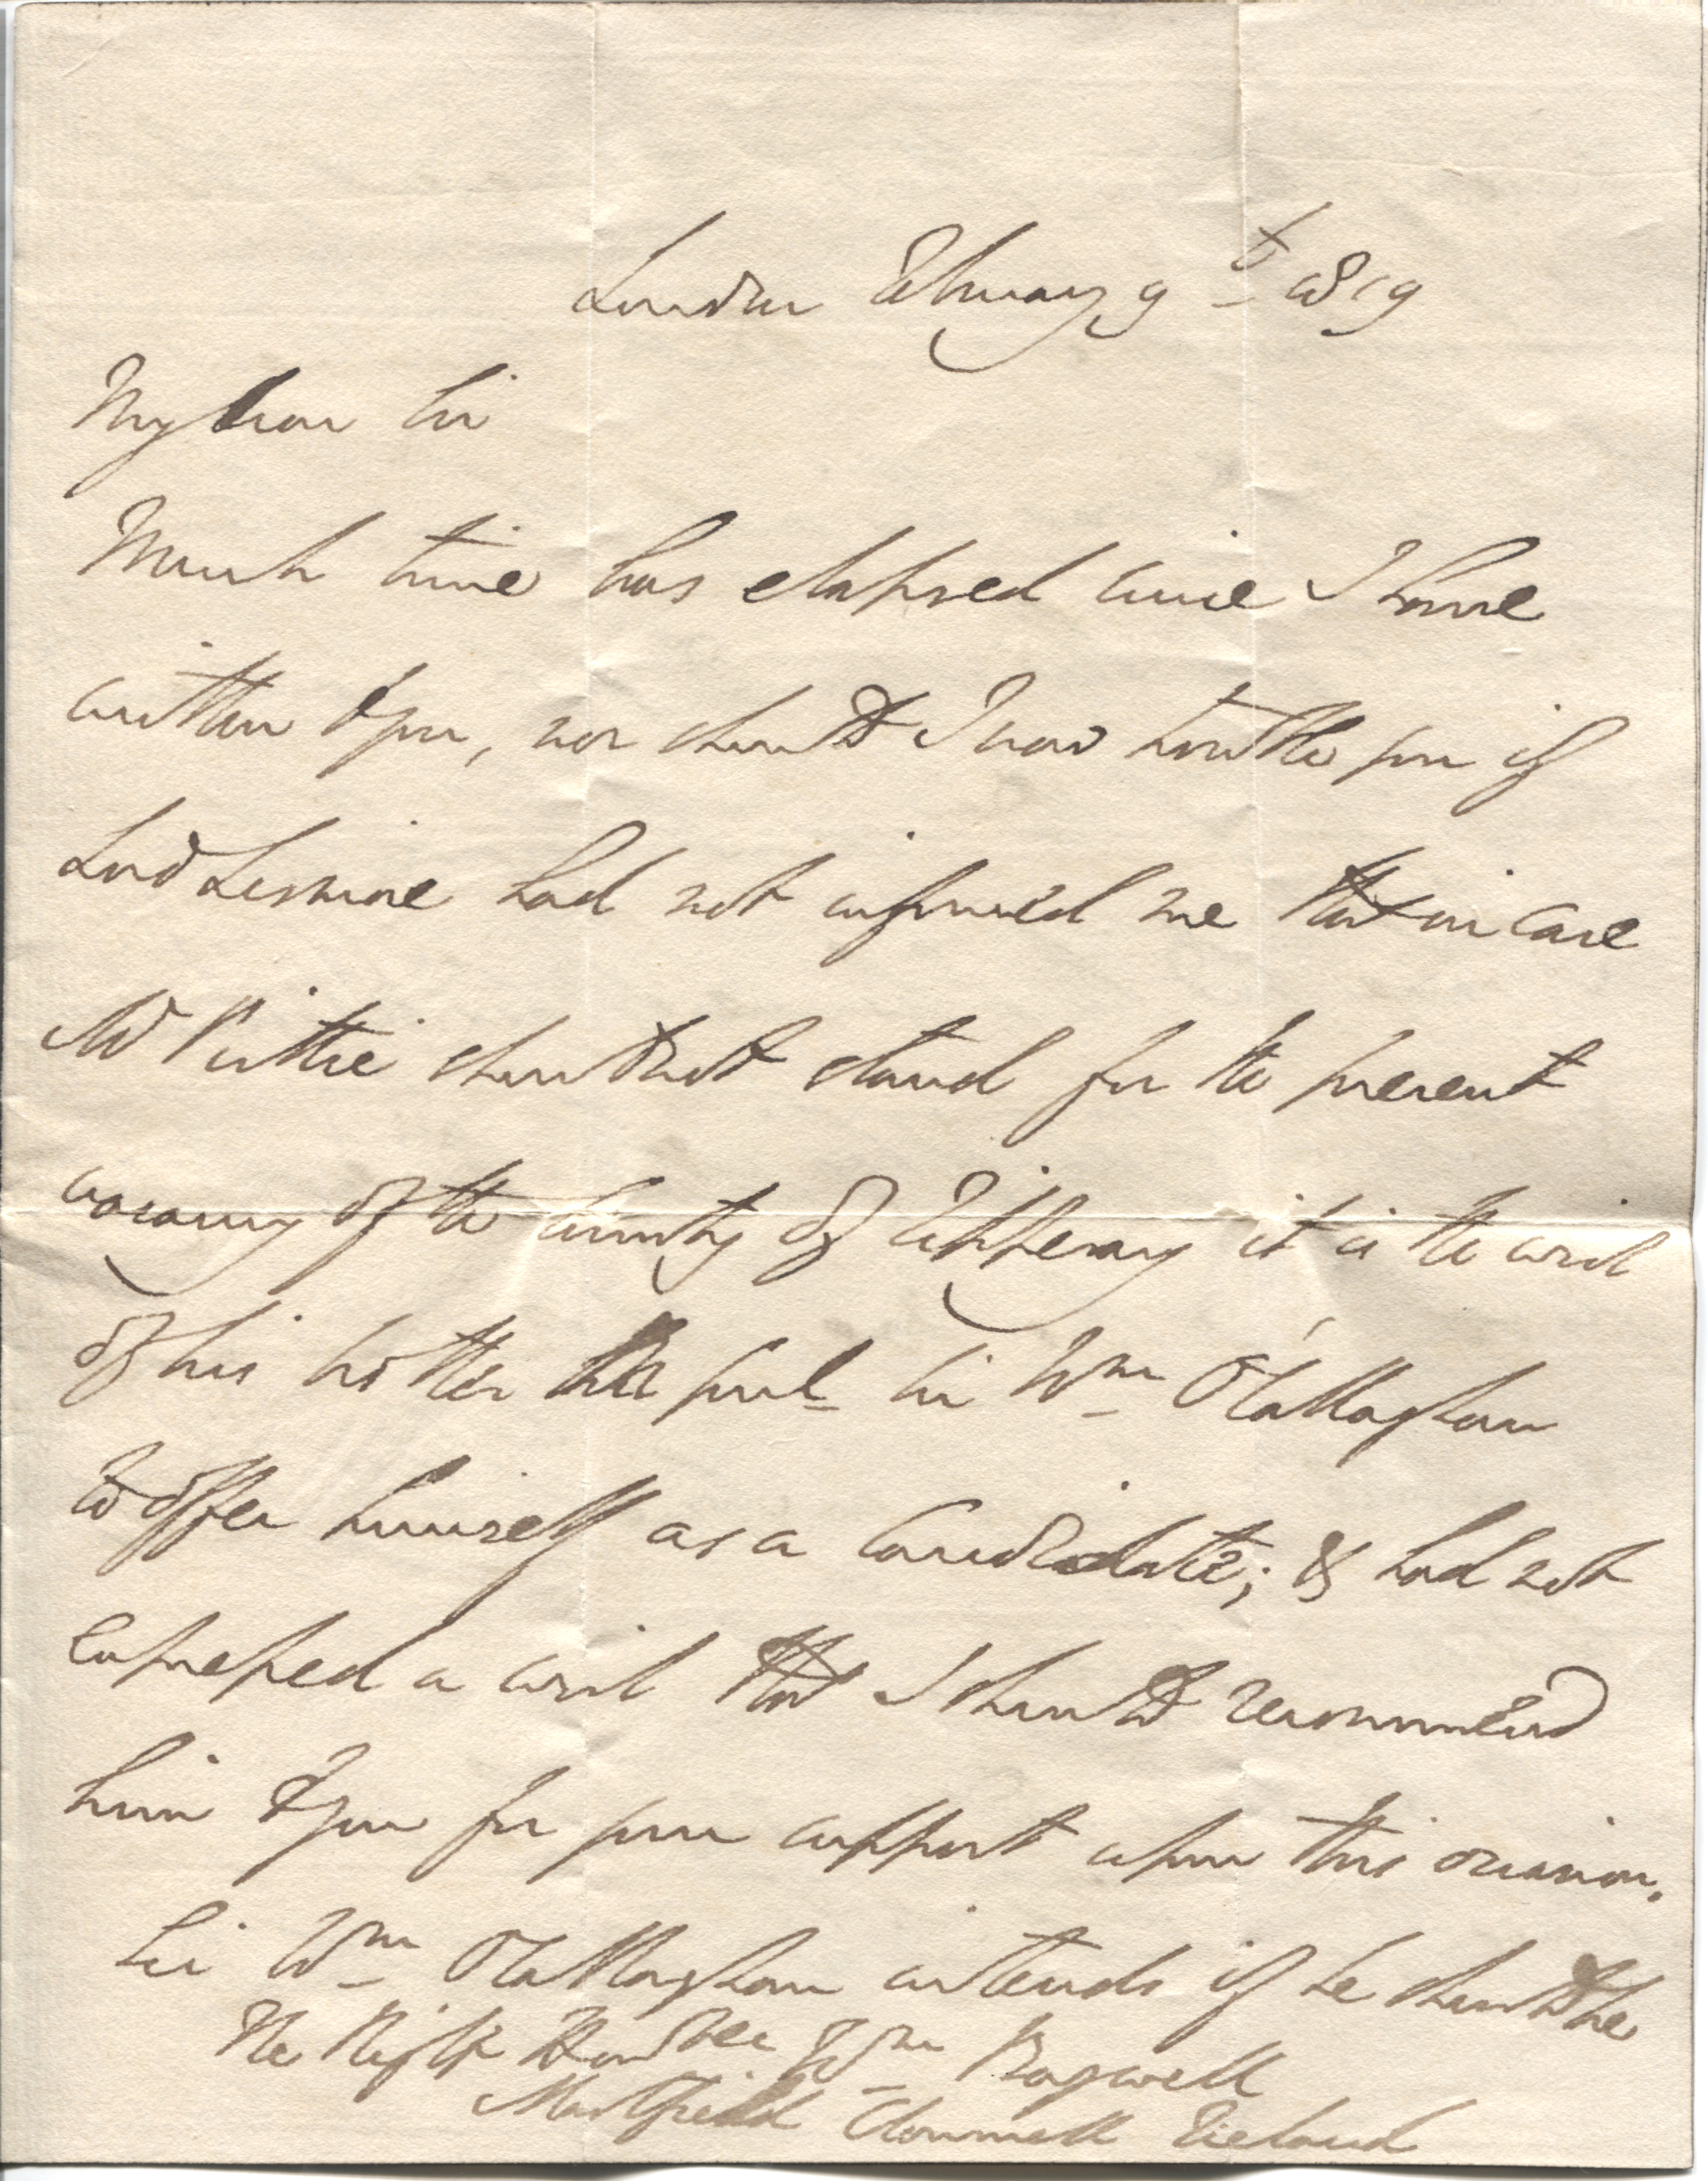 London February 9th 1819
My Dear Sir
Much time has elapsed since I have
written to you, nor should I now trouble you if
Lord Lismore had not informed me that in case
Mr Prittie should not stand for the present
vacancy of the County of Tipperary it is the wish
of his brother the Honl. Sir Wm O'Callaghan
to offer himself as a Candidate; & had not
expressed a wish that I should recommend
him to you for your support upon this occasion.
Sir Wm O'Callaghan intends if he should be
The Right Honble Wm Bagwell
Marlfield Clonmell Ireland